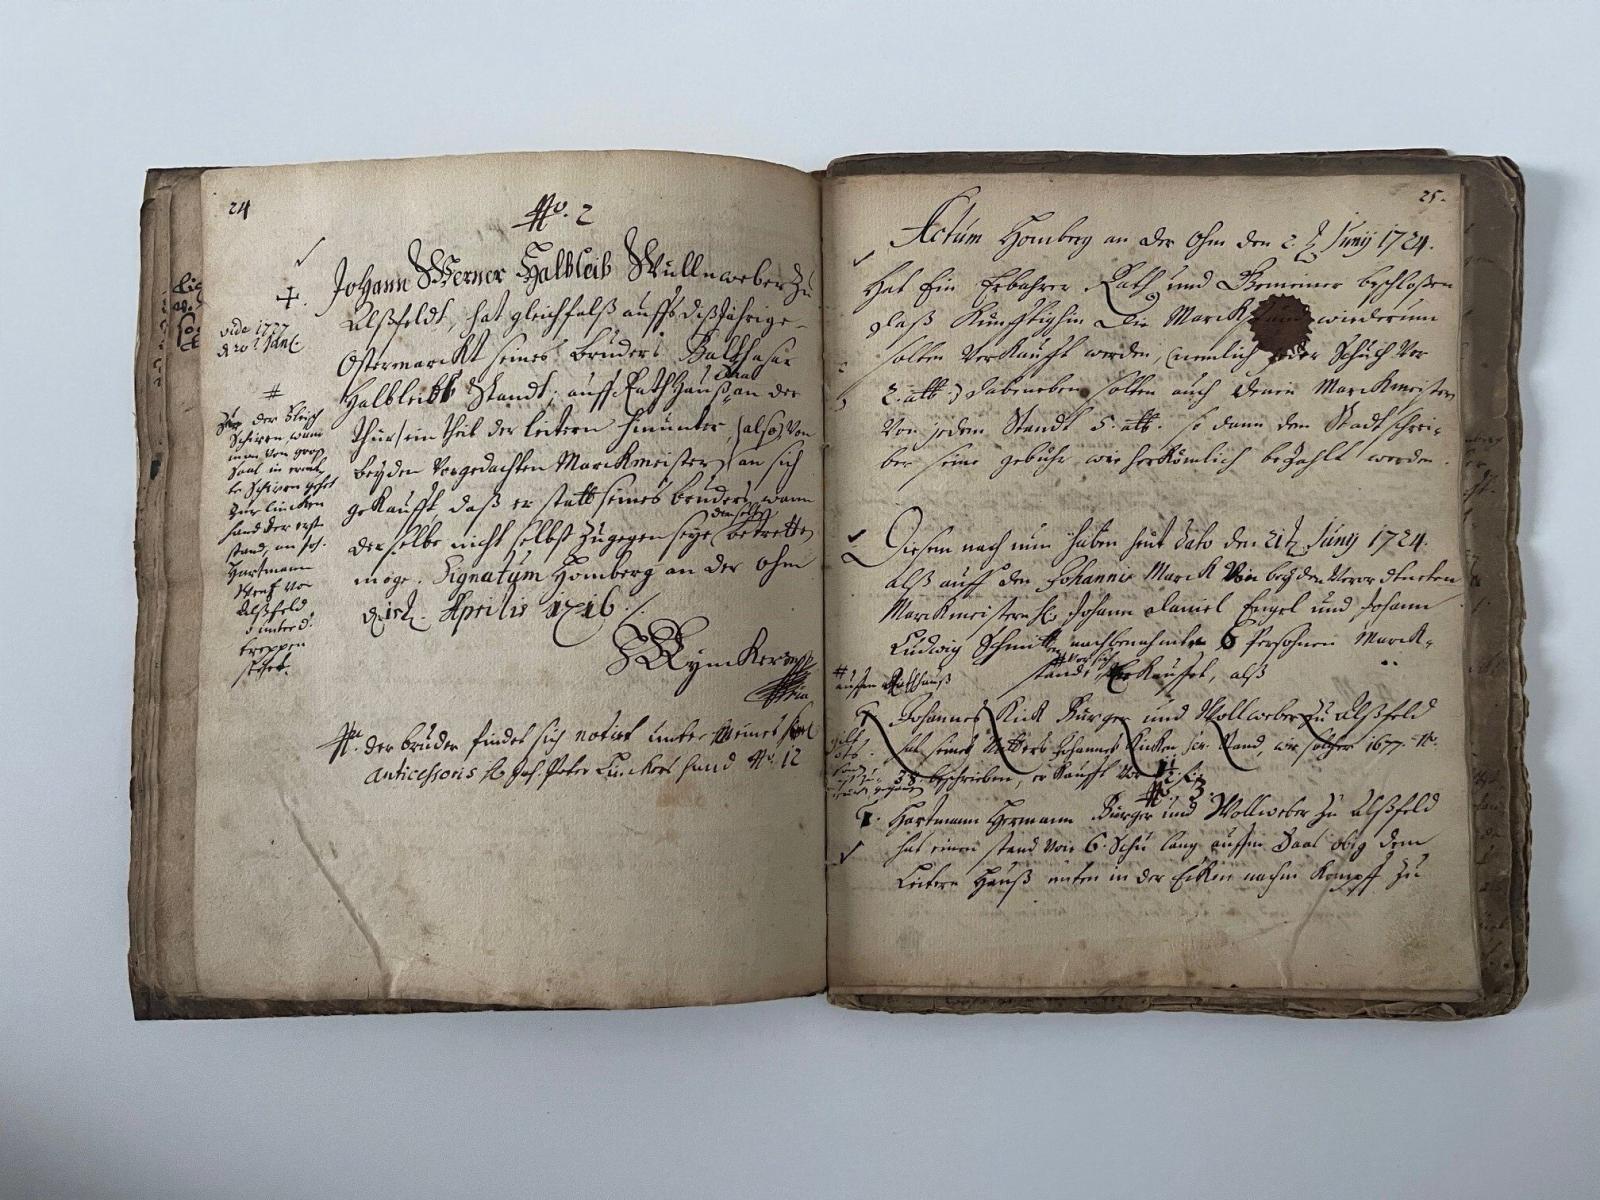 24
No. 2
Johann Werner Halbleib Wullnweber zu
Alßfeldt, hat gleichfalß auffs dißjährige
Ostermarckt seines bruders Balthasar
Halbleibs Standt, auff Rathhauß an der
Saal
thür ein theil der leitern hinunter, (also) von
beyden vorgedachten Marckmeistern an sich
gekaufft, daß er statt seines bruders, wann
derselbe nicht selbst zugegen seye betretten
denselben
möge. Signatum Homberg an der Ohm
d. 1st. Aprilis 1716 ./.
der bruder findet sich notirt unter meines
anticessoris H. Joh. Peter Linckers hand No. 12
vide 1727
#
der
Schirren wann
man von
Saal in
Schirren gehet
zur lincken
hand der erste
stand, an Joh.
Hartmann
von
Alßfeld
treppen
25.
Actum Homberg an der Ohm den 2t. Junij 1724.
Hat Ein Erbahrer Rath und Gemeiner beschloßen
daß Künfftighin die Marck wiederum
sollen verkaufft werden, (nemlich jeder Schuch vor
2. alb.) darneben sollen auch denen Marckmeistern
von jedem Standt 5. alb. so dann dem Stadtschrei-
ber seine gebühr wie herkömlich bezahlt werden.
Diesem nach nun haben heut dato den 21t. Junij 1724.
alß auff den Johannis Marck von beyden verordneten
Marckmeistern H. Johann Daniel Engel und Johann
Ludwig Schmitten nachbenahmte 6 Persohnen Marck-
stände verkauffet, alß
#
auffm Rathhauß
1. Johannes Kick Burger und Wollweber zu Alßfeld
hat seines Vatters Johannes Kicken sen. Stand, wie solcher 1677. No.
38 beschrieben, er kaufft vor
1. Hartmann Hermann Burger und Wollweber zu Alßfeld
hat einen stand von 6. Schu lang auffm Saal obig dem
Leitern Hauß unten in der Ecken nachm Kampff zu